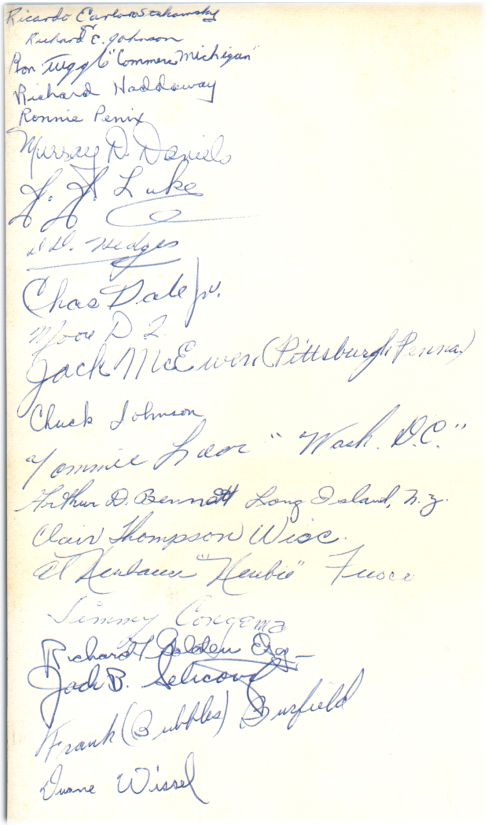 Ricardo Earl
Richard E. Johnson
Ron Tuggle "Commerce Michigan"
Richard Haddoway
Ronnie Penix
Murray D. Daniels
J. J. Luke
D. Hedges
Chas Dale Jr.
Jack McEwen (Pittsburgh Penna)
Chuck Johnson
Tommie "Wash. D.C."
Arthur D. Bennett Long Island, N.Y.
Clair Thompson Wisc.
Al "Neubie"
Jimmy Congema
Richard Golden Esq.
Jack B.
Frank (Bubbles) Burfield
Duane Wissel